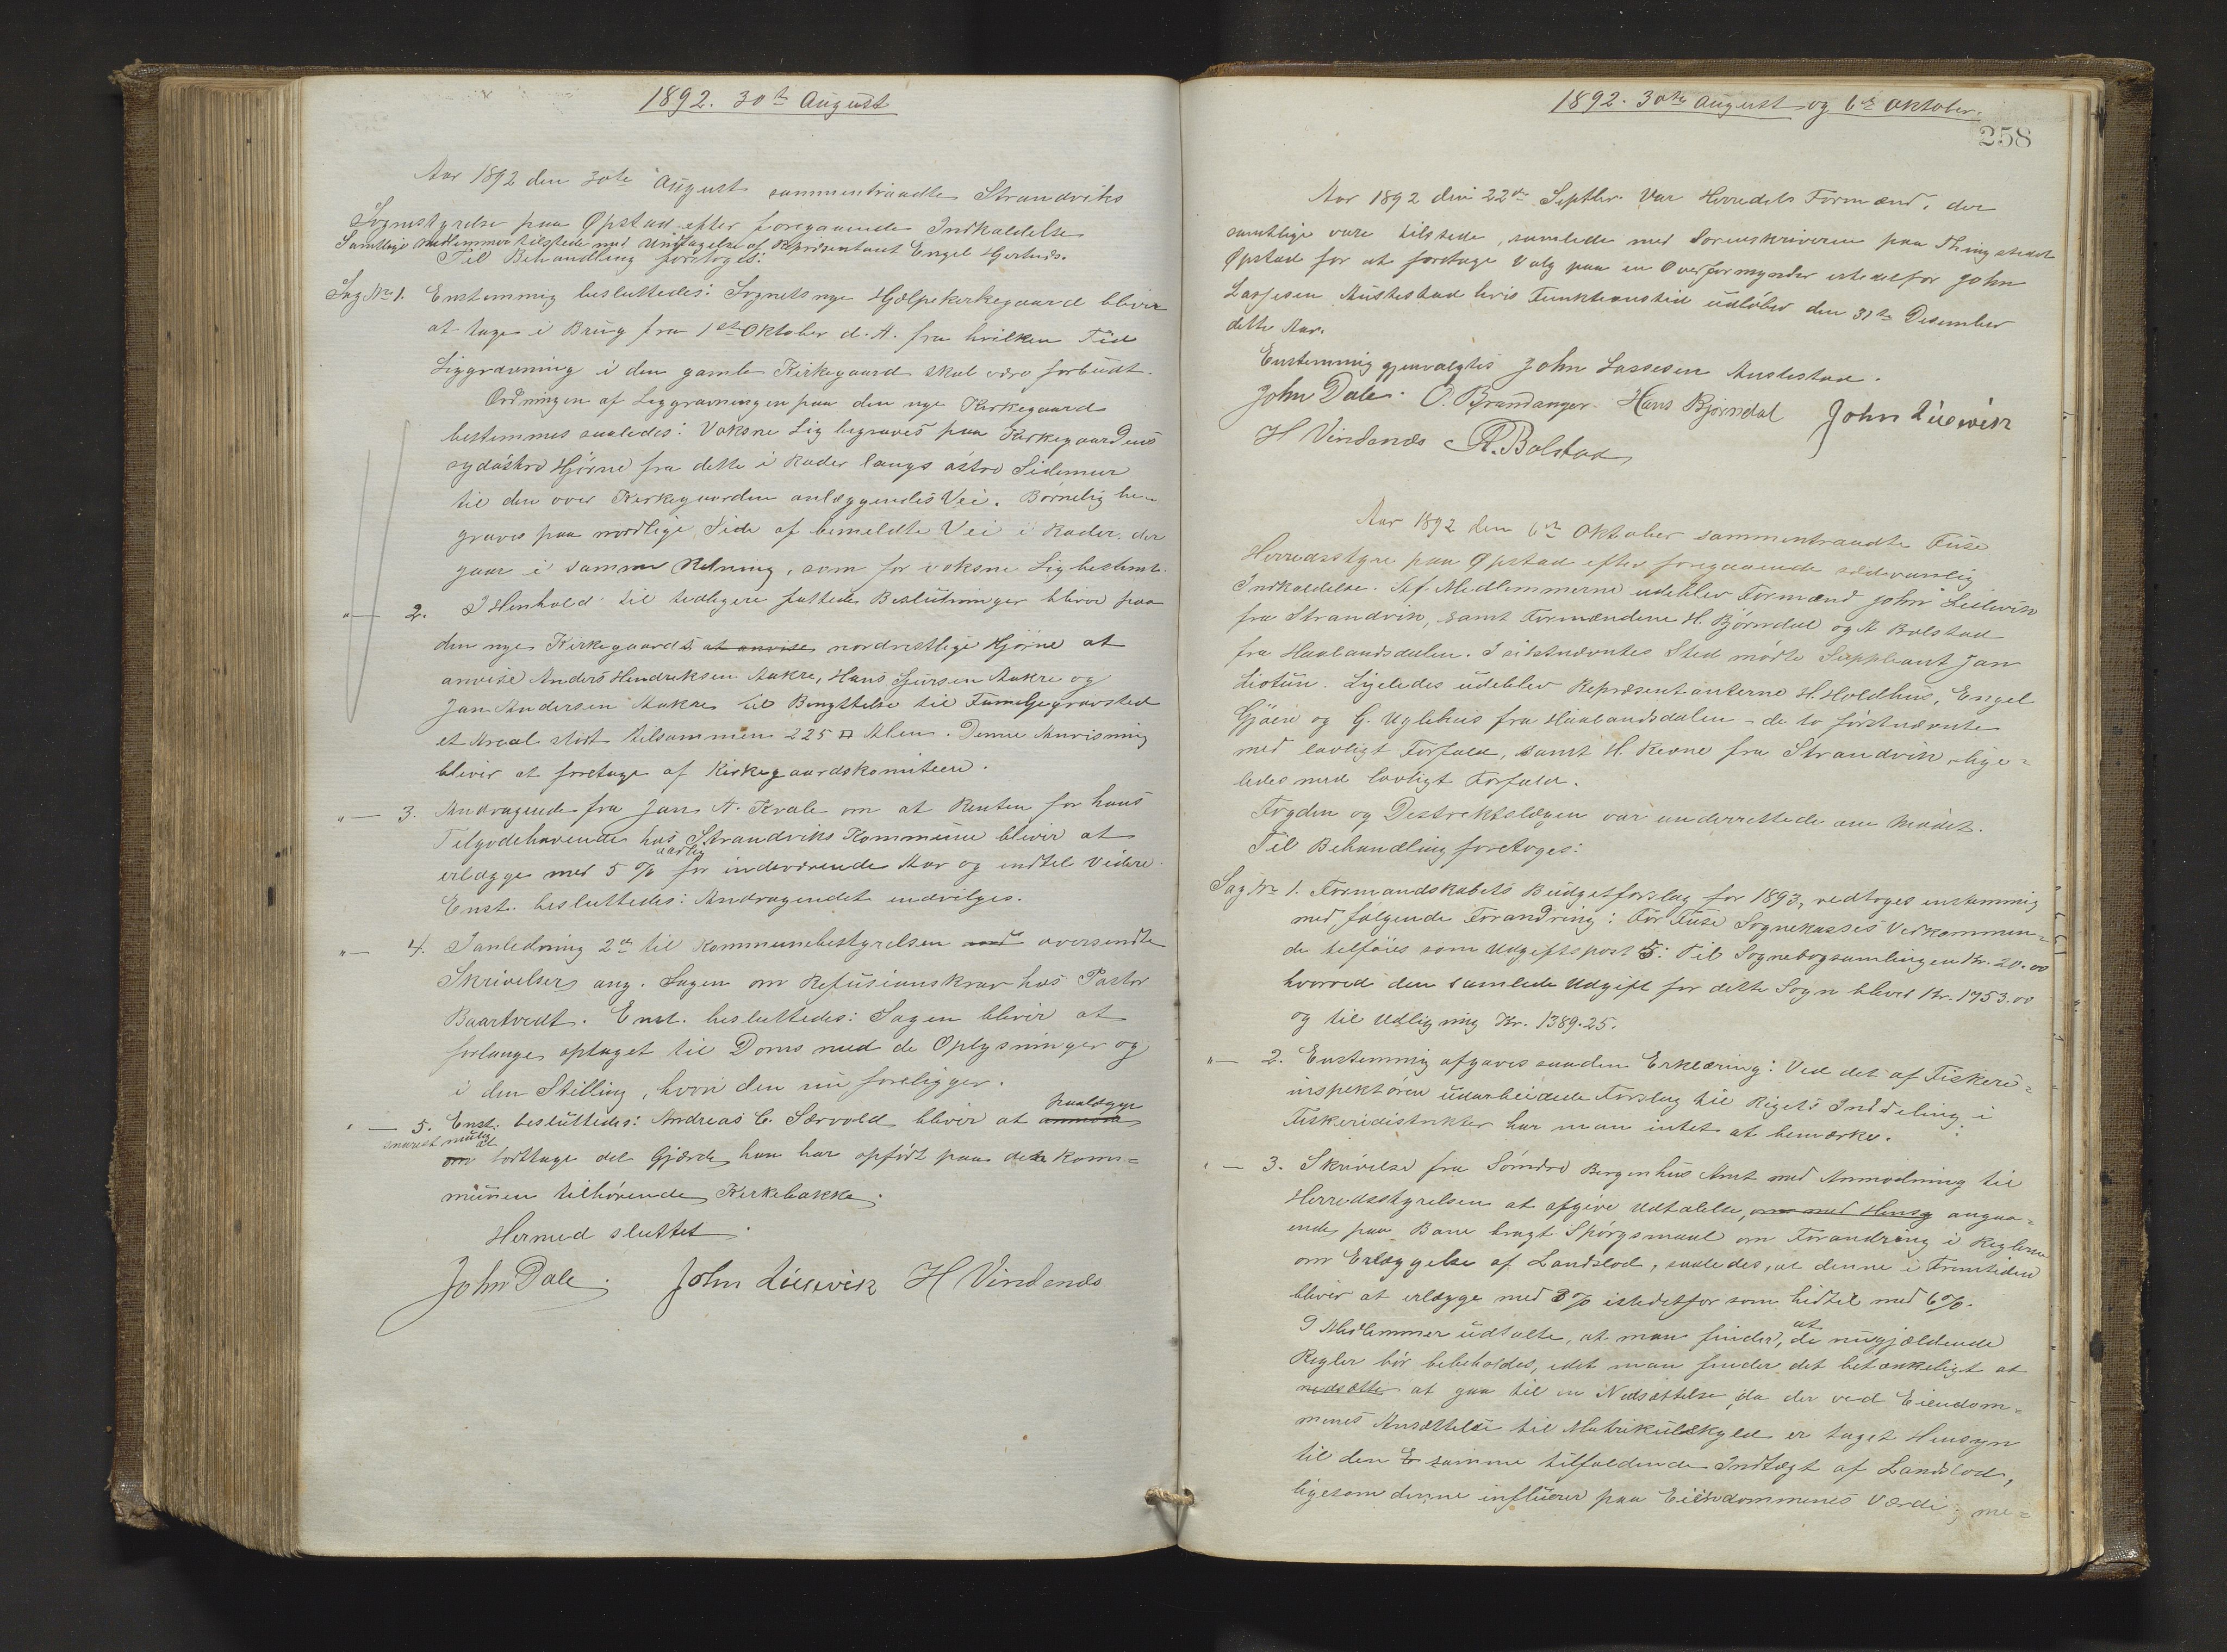 1892. 30te August
Aar 1892 den 30te August sammentraadte Strandviks
Sognestyrelse paa Øpstad efter foregaaende Indkaldelse
Samtlige Medlemmer tilstede med Undtagelse af Repræsentant Engel Gjertruds.
Til Behandling foretoges:
Sag No 1. Enstemmig besluttedes: Sognets nye Hjælpekirkegaard bliver
at tage i Brug fra 1ste Oktober d. A. fra hvilken Tid
Liggravning i den gamle Kirkegaard skal være forbudt.
Ordningen af Liggravningen paa den nye Kirkegaard
bestemmes saaledes: Voksne Lig begraves paa Kirkegaardens
sydöstre Hjörne fra dette i Rader langs östre Sidemur
til den over Kirkegaarden anlæggendes Vei. Børnelig be-
graves paa nordlige Side af bemeldte Vei i Rader, der
gaar i samme Retning, som for voksne Lig bestemt.
"— 2. I Henhold til tidligere fattede Beslutninger bliver paa
den nye Kirkegaards at anvise nordvestlige Hjørne at
anvise Anders Hendriksen Aakre, Hans Sjursen Aakre og
Jan Andersen Aakre til Benyttelse til Familjegravsted
et Areal stort tilsammen 225 □ Alen. Denne Anvisning
bliver at foretage af Kirkegaardskomiteen.
"— 3. Andragende fra Jan A. Kvale om at Renten for hans
Tilgodehavende hos Strandviks Kommune bliver at
aarlig
erlægge med 5 % for indeværende Aar og indtil videre.
Enst. besluttedes: Andragendet indvilges.
"— 4. I anledning 2de til Kommunebestyrelsen med oversendte
Skrivelser ang. Sagen om Refusionskrav hos Pastor
Baartvedt. Enst. besluttedes: Sagen bliver at
forlange optaget til Doms med de Oplysninger og
i den Stilling, hvor den nu foreligger.
"— 5. Enst. besluttedes: Andreas C. Særvold bliver at anmode paalægge
snarest mulig at
om borttage det Gjærde han har opført paa den Kom=
munen tilhørende Kirkebakke.
Hermed sluttet.
John Dale. John Liisevik H Vindenæs
1892. 30te August og 6te Oktober.
258
Aar 1892 den 22de Septbr. var Herredets Formænd, der
samtlige vare tilstede, samlede med Sorenskriveren paa Thingstedet
Øpstad for at foretage Valg paa en Overformynder istedetfor John
Lassesen Austestad hvis Funktionstid udløber den 31te Desember
dette Aar.
Enstemmig gjenvalgtes John Lassesen Austestad.
John Dale. O. Brandanger. Hans Bjørndal John Liisevik
H Vindenæs A. Bolstad
Aar 1892 den 6te Oktober sammentraadte Fuse
Herredsstyre paa Øpstad efter foregaaende sædvanlig
Indkaldelse. Af Medlemmerne udeblev Formænd John Liisevik
fra Strandvik, samt Formændene H. Bjørndal og A Bolstad
fra Haalandsdalen. I sistnævntes Sted mødte Suppleant Jan
Liotun. Ligeledes udeblev Repræsentanterne H. Holdhus, Engel
Gjöen og G. Uglehus fra Haalandsdalen – de to førstnævnte
med lovligt Forfald, samt H. Revne fra Strandvik, lige=
ledes med lovligt Forfald.
Fogden og Destrektslægen var underrettede om Mødet.
Til Behandling foretoges:
Sag No 1. Formandskabets Budgetforslag for 1893, vedtoges enstemmig
med følgende Forandring: For Fuse Sognekasses Vedkommen=
de tilføies som Udgiftspost 5: Til Sognebogsamlingen Kr. 20.00
hvorved den samlede Udgift for dette Sogn bliver Kr. 1753.00
og til Udligning Kr. 1389.25.
"— 2. Enstemmig afgaves saadan Erklæring: Ved det af Fiskeri=
inspektøren udarbeidede Forslag til Rigets Inddeling i
Fiskeridistrikter har man intet at bemærke.
"— 3. Skrivelse fra Søndre Bergenhus Amt med Anmodning til
Herredsstyrelsen at afgive Udtalelse, om med Hensy angaa=
ende paa Bane bragt Spörgsmaal om Forandring i Reglerne
om Erlæggelse af Landslod, saaledes, at denne i Fremtiden
bliver at erlægge med 3 % istedetfor som hidtil med 6 %.
9 Medlemmer udtalte, at man finder, at de nugjældende
Regler bör bebeholdes, idet man finder det betænkeligt at
nedsætte at gaa til en Nedsættelse, da der ved Eiendom=
menes Ansættelse til Matrikulskyld er taget Hensyn
til den E samme tilfaldende Indtægt af Landslod,
ligesom denne influerer paa Eiendommenes Værdi; me=